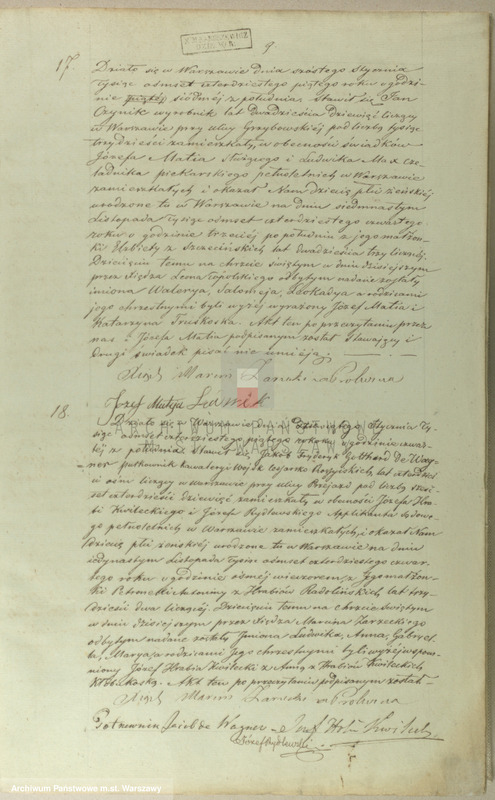 9
17. Działo się w Warszawie dnia szóstego Stycznia
tysiąc ośmset czterdziestego piątego roku o godzi-
nie siódmej z południa. Stawił się Jan
wyrobnik lat dwadzieścia dziewięć liczący
w Warszawie przy ulicy Grzybowskiej pod liczbą tysiąc
trzydzieści zamieszkały, w obecności świadków
Józefa Matia i Ludwika Max cze-
ladnika piekarskiego pełnoletnich w Warszawie
zamieszkałych i okazał Nam dziecię płci żeńskiej
urodzone tu w Warszawie na dniu siedmnastym
Listopada tysiąc ośmset czterdziestego czwartego
roku o godzinie trzeciej po południu z jego małżon-
ki Elżbiety z Szczecińskich lat dwadzieścia trzy liczącej.
Dziecięciu temu na chrzcie świętym w dniu dzisiejszym
przez Xiędza odbytym nadane zostały
imiona Walerya, Salomeja, Leokadya a rodzicami
jego chrzestnymi byli wyżej wyrażony Józef Matia i
Katarzyna Truskoska. Akt ten po przeczytaniu przez
nas i Józefa Matia podpisanym został Stawający i
drugi świadek pisać nie umieją.
Xiądz Marcin Zarzecki
Józef Matyja
18. Działo się w Warszawie dnia Stycznia ty-
siąc ośmset czterdziestego piątego roku o godzinie czwar-
tej z południa. Stawił się Jakób Fryderyk Gotthard De Wag-
ner pułkownik kawaleryi Wojsk Cesarsko Rossyjskich, lat czterdzieści
ośm liczący w Warszawie przy ulicy Przejazd pod liczbą sześć-
set czterdzieści dziewięć zamieszkały w obecności Józefa Hra-
bi Kwileckiego i Józefa Rydlewskiego Applikanta sądowe-
go pełnoletnich w Warszawie zamieszkałych, i okazał Nam
dziecię płci żeńskiej urodzone tu w Warszawie na dniu
jedynastym Listopada tysiąc ośmset czterdziestego czwar-
tego roku o godzinie ósmej wieczorem z Jego małżon-
ki z Hrabiów Radolińskich, lat trzy-
dzieści dwa liczącej Dziecięciu temu na chrzcie świętym
w dniu dzisiejszym przez Xiędza Marcina Zarzeckiego
odbytym nadane zostały Imiona Ludwika, Anna, Gabryel-
la, Marya, a rodzicami Jego chrzestnymi byli wyżej wspom-
niony Józef Hrabia Kwilecki z Anną z Hrabiów Kwileckich
Akt ten po przeczytaniu podpisanym został.
Xiądz Marcin Zarzecki
Wagner Józef Kwilecki
Józef Rydlewski
Archiwum Państwowe m.st. Warszawy